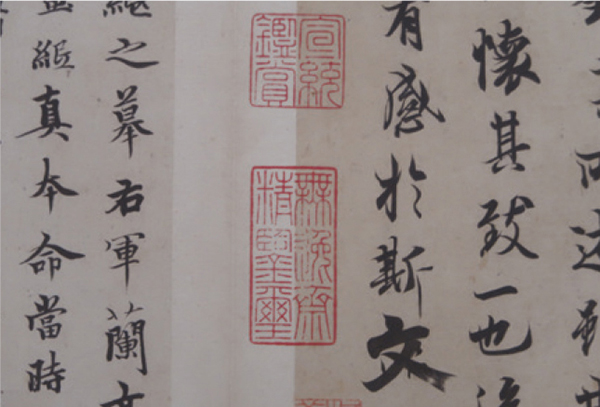 所述雖世
懷其致一也後
有感於斯文
宣統
鑑賞
無逸齋
精鑒璽
之摹右軍蘭亭
真本命當時